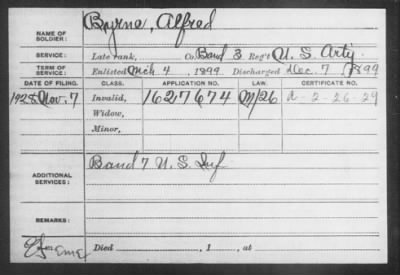 Byrne, Alfred
NAME OF SOLDIER:
SERVICE: Late rank, Co. Band 3 Reg't U. S. Arty.
TERM OF SERVICE: Enlisted Mch 4, 1899 Discharged Dec. 7, 1899
DATE OF FILING. CLASS. APPLICATION NO. CERTIFICATE NO.
1928 Nov. 7 Invalid, 1627674
Widow,
Minor,
ADDITIONAL SERVICES: Band 7 U. S. Inf
REMARKS:
Died , 1 , at